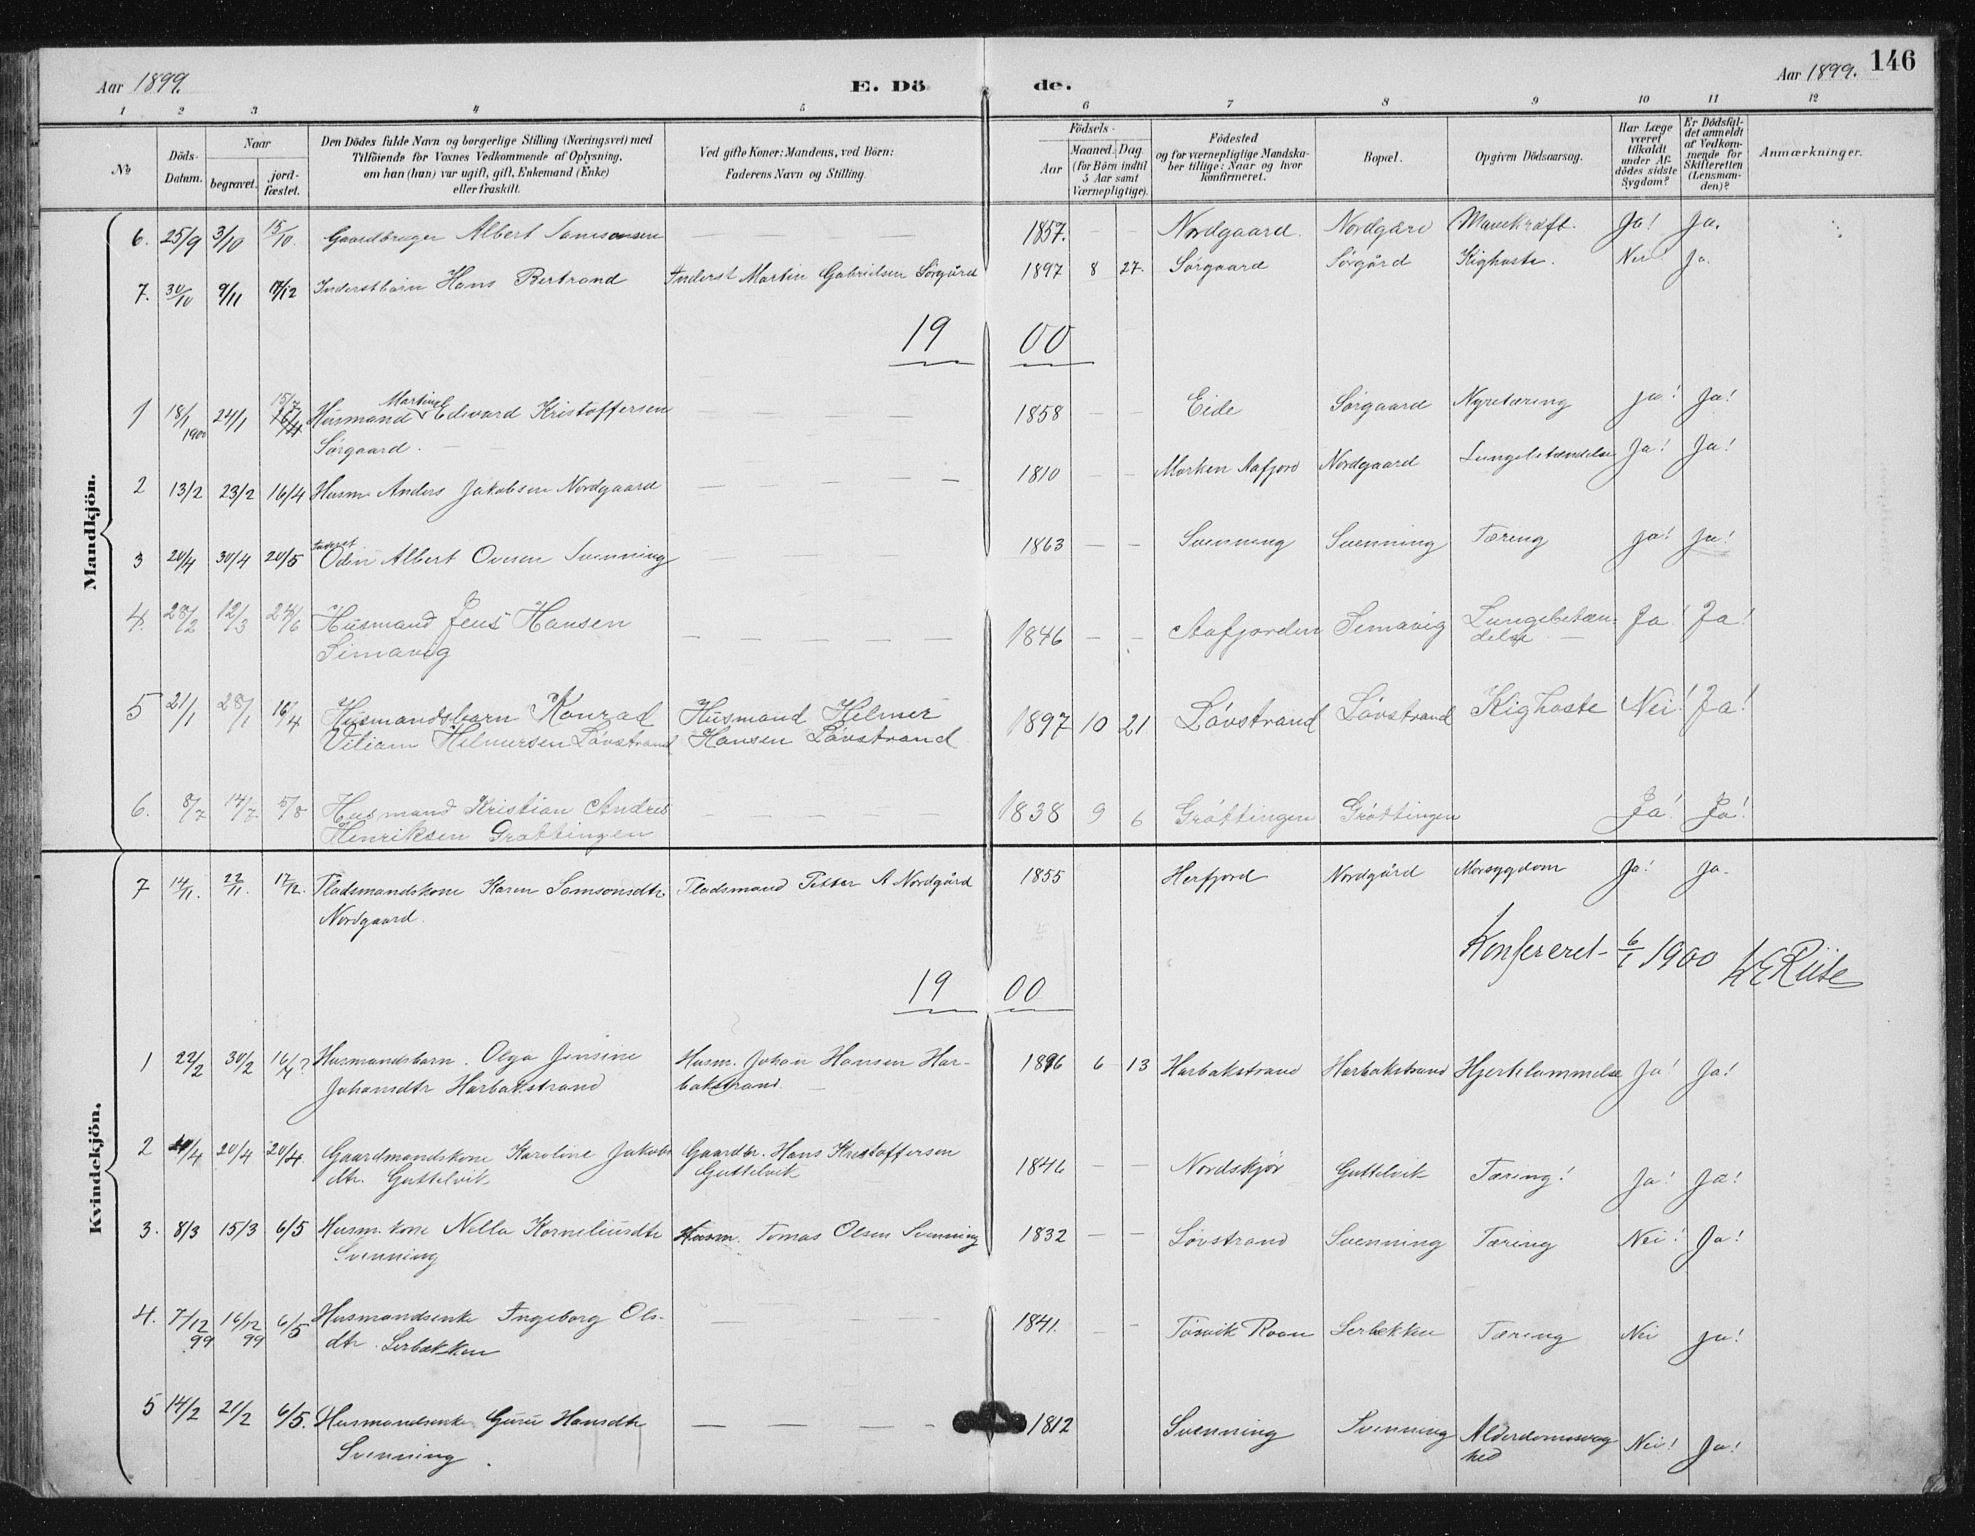 Aar 1899. E. Dö de. Aar 1899. 146
1 2 3 4 5 6 7 8 9 10 11 12
№ Döds-Datum. Naar begravet. jordfæstet. Den Dödes fulde Navn og borgerlige Stilling (Næringsvei) med Tilföiende for Voxnes Vedkommende af Oplysning, om han (hun) var ugift, gift, Enkemand (Enke) eller fraskilt. Ved gifte Koner: Mandens, ved Börn: Faderens Navn og Stilling. Födsels- Aar Maaned. Dag. (for Börn indtil 5 Aar samt Værnepligtige). Födested og for værnepligtige Mandskaber tillige: Naar og hvor konfirmeret. Bopæl. Opgiven Dödsaarsag. Har Læge været tilkaldt under Afdödes sidste Sygdom? Er Dödsfaldet anmeldt af Vedkommende for Skifteretten (Lensmanden)? Anmærkninger.
Mandkjön.
6. 25/9 3/10 15/10. Gaardbruger Albert Samsonsen 1857. Nordgaard. Nordgård Mavekræft. Ja! Ja.
7. 30/10 9/11 17/12 Inderstbarn Hans Bertrand Inderst Martin Gabrielsen Sörgård 1897 8 27. Sörgaard Sörgård Kighoste. Nei! Ja.
19 00
1 18/1 1900 24/1 15/7 16/4 Husmand Martin Edvard Kristoffersen 1858 Eide Sörgaard Nyretæring Ja! Ja!
Sörgaard.
2 13/2 23/2 16/4 Husm. Anders Jakobsen Nordgaard 1810 Marken Aafjord Nordgaard Lungebetændelse Ja! Ja!
3 20/4 30/4 20/5 Inderst Odin Albert Ovesen Svenning 1863 Svenning Svenning Tæring Ja! Ja!
4. 28/2 12/3 24/6 Husmand Jens Hansen 1846 Aafjorden Simavig Lungebetæn-
Simavig delse
5 21/1 28/1 16/4 Husmandsbarn Konrad Husmand Hilmer 1897 10 21 Lövstrand Lövstrand Kighoste Nei! Ja!
Viliam Hilmersen Lövstrand Hansen Lövstrand
6. 8/7 14/7 5/8 Husmand Kristian Andres 1838 9 6 Gröttingen Gröttingen Ja! Ja!
Henriksen Gröttingen
Kvindekjön.
7 14/11. 22/11 17/12. Pladsmandskone Karen Samsonsdtr Pladsmand Petter A Nordgård 1855 Herfjord Nordgård Morsygdom Ja! Ja.
Nordgaard.
Konfereret 6/1 1900 Riise
19 00
1 22/2 30/2 16/4? Husmandsbarn. Olga Jensine Husm. Johan Hansen Har- 1896 6 13 Harbakstrand Harbakstrand Hjertelammelse Ja! Ja!
Johansdtr Harbakstrand bakstrand.
2 20/4 20/4. Gaardmandskone Karoline Jakobs Gaardbr. Hans Kristoffersen 1846 Nordskjör Guttelvik Tæring! Ja! Ja!
dtr. Guttelvik Guttelvik
3. 8/3 15/3 6/5 Husm. kone Nella Korneliusdtr Husm. Tomas Olsen Svenning 1832 Lövstrand Svenning Tæring Nei! Ja!
Svenning
4. 7/12 99 16/12 99 6/5 Husmandsenke Ingeborg Ols- 1841. Roan Lerbækken Tæring Nei Ja!
dtr. Lerbækken
5 14/2 21/2 6/5. Husmandsenke Guru Hansdtr 1812 Svenning Svenning Alderdomssvag Nei! Ja!
Svenning. hed